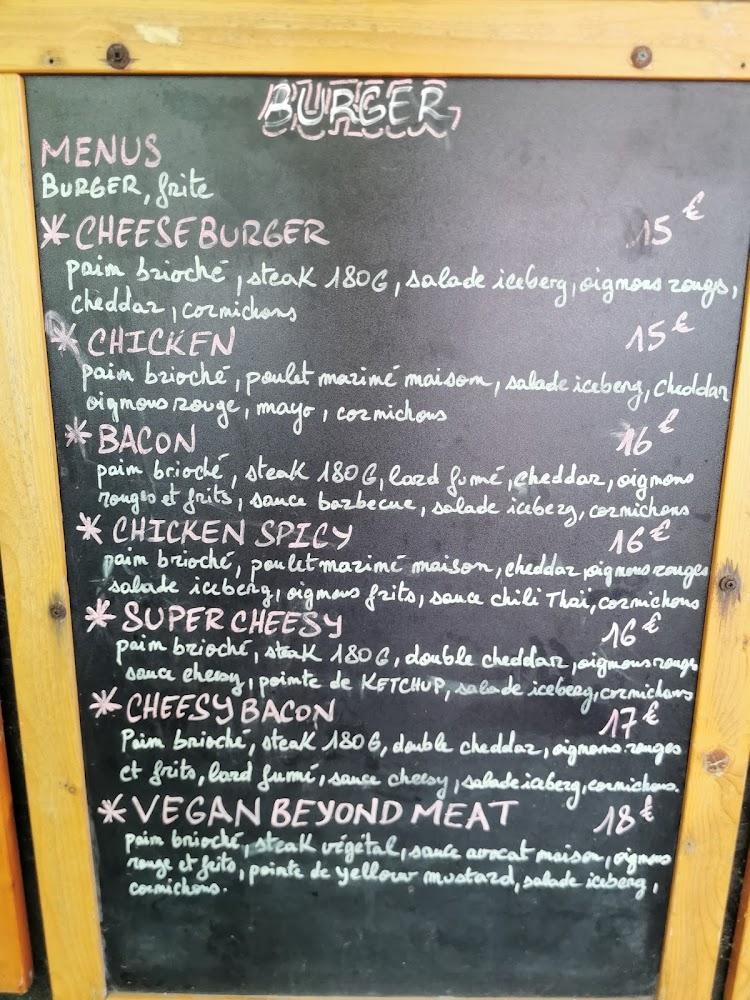 BURGER
MENUS
BURGER, frite
* CHEESEBURGER 15€
pain brioché, steak 180G, salade iceberg, oignons rouges,
cheddar, cornichons
* CHICKEN 15€
pain brioché, poulet mariné maison, salade iceberg, cheddar
oignons rouge, mayo, cornichons
* BACON 16€
pain brioché, steak 180G, lard fumé, cheddar, oignons
rouges et frits, sauce barbecue, salade iceberg, cornichons
* CHICKEN SPICY 16€
pain brioché, poulet mariné maison, cheddar, oignons rouges
salade iceberg, oignons frits, sauce chili Thaï, cornichons
* SUPER CHEESY 16€
pain brioché, steak 180G, double cheddar, oignons rouges
sauce cheesy, pointe de KETCHUP, salade iceberg, cornichons
* CHEESY BACON 17€
Pain brioché, steak 180G, double cheddar, oignons rouges
et frits, lard fumé, sauce cheesy, salade iceberg, cornichons.
* VEGAN BEYOND MEAT 18€
pain brioché, steak végétal, sauce avocat maison, oignons
rouge et frits, pointe de yellow mustard, salade iceberg,
cornichons.